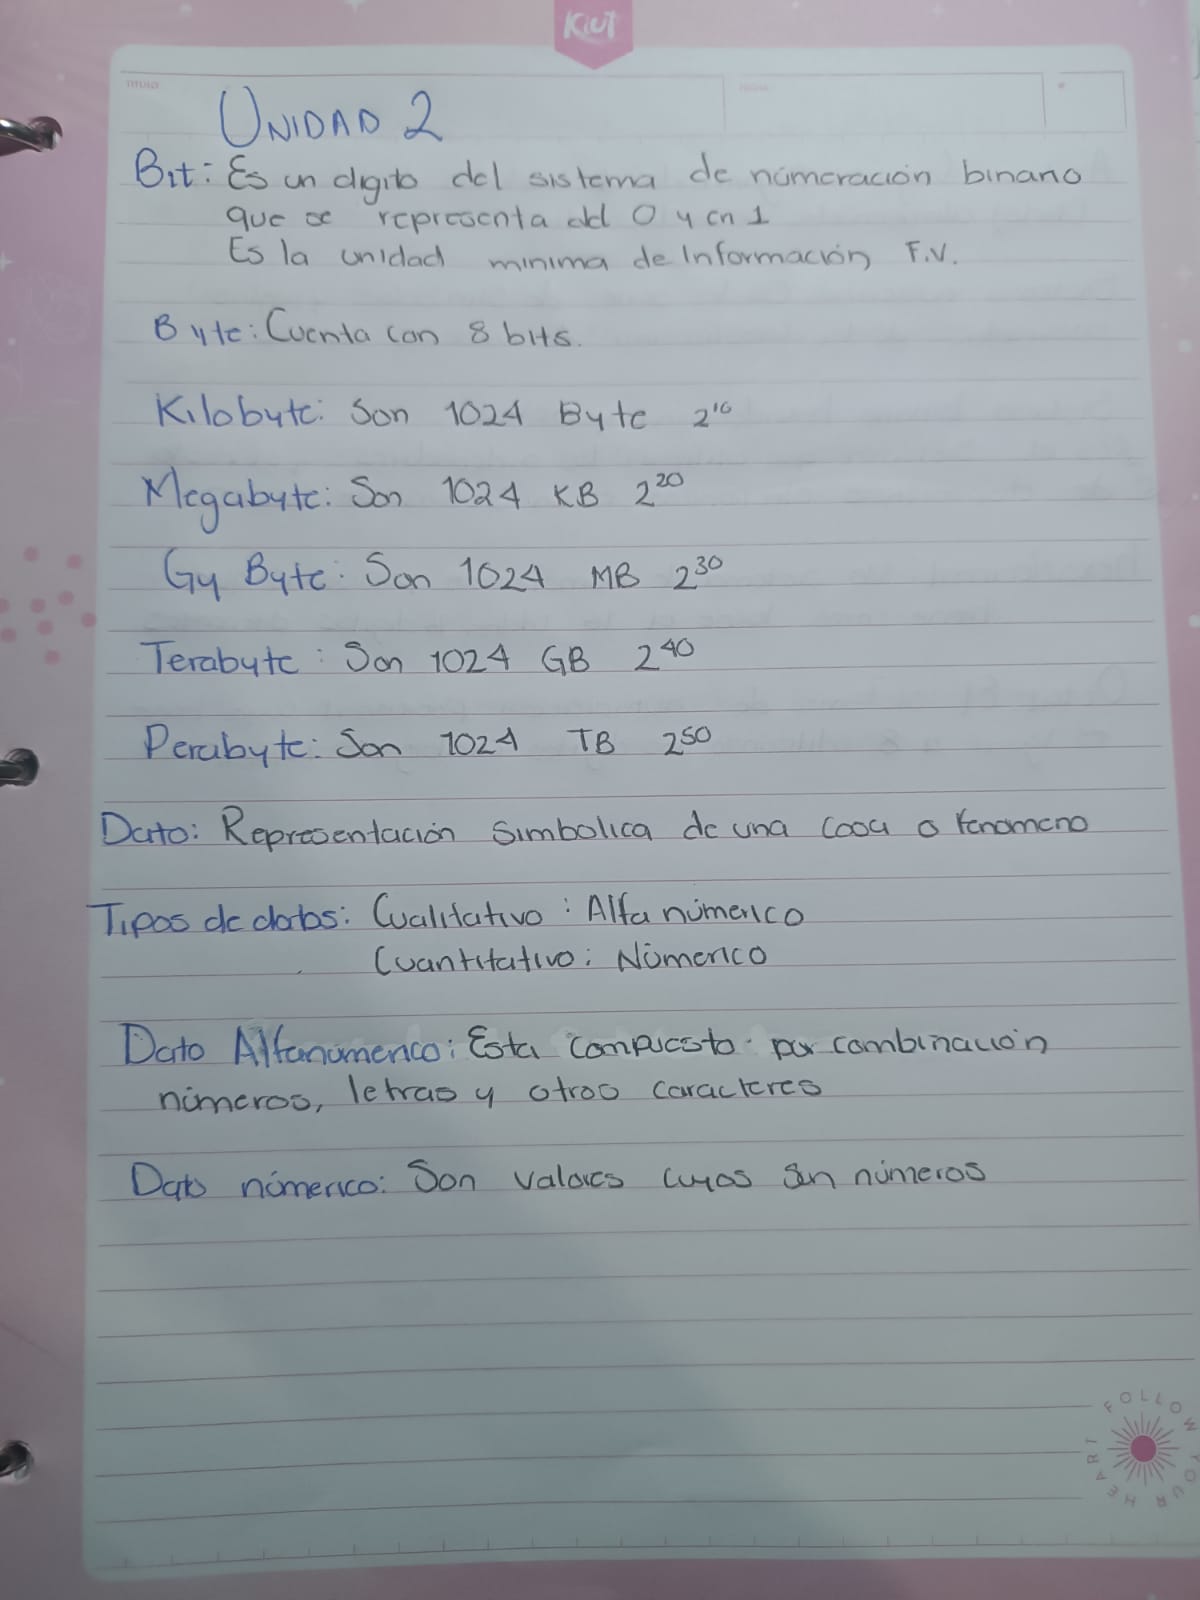 Kiut
TITULO
FECHA
UNIDAD 2
Bit: Es un digito del sistema de númeración binario
que se representa del 0 y en 1
Es la unidad minima de Información F.V.
Byte: Cuenta con 8 bits.
Kilobyte: Son 1024 Byte 2¹⁰
Megabyte: Son 1024 KB 2²⁰
Gy Byte: Son 1024 MB 2³⁰
Terabyte: Son 1024 GB 2⁴⁰
Perabyte: Son 1024 TB 2⁵⁰
Dato: Representación simbolica de una cosa o fenomeno
Tipos de datos: Cualitativo: Alfa númerico
Cuantitativo: Númerico
Dato Alfanúmerico: Esta compuesto por combinación
números, letras y otros caracteres
Dato númerico: Son valores cuyos sin números
FOLLOW YOUR HEART